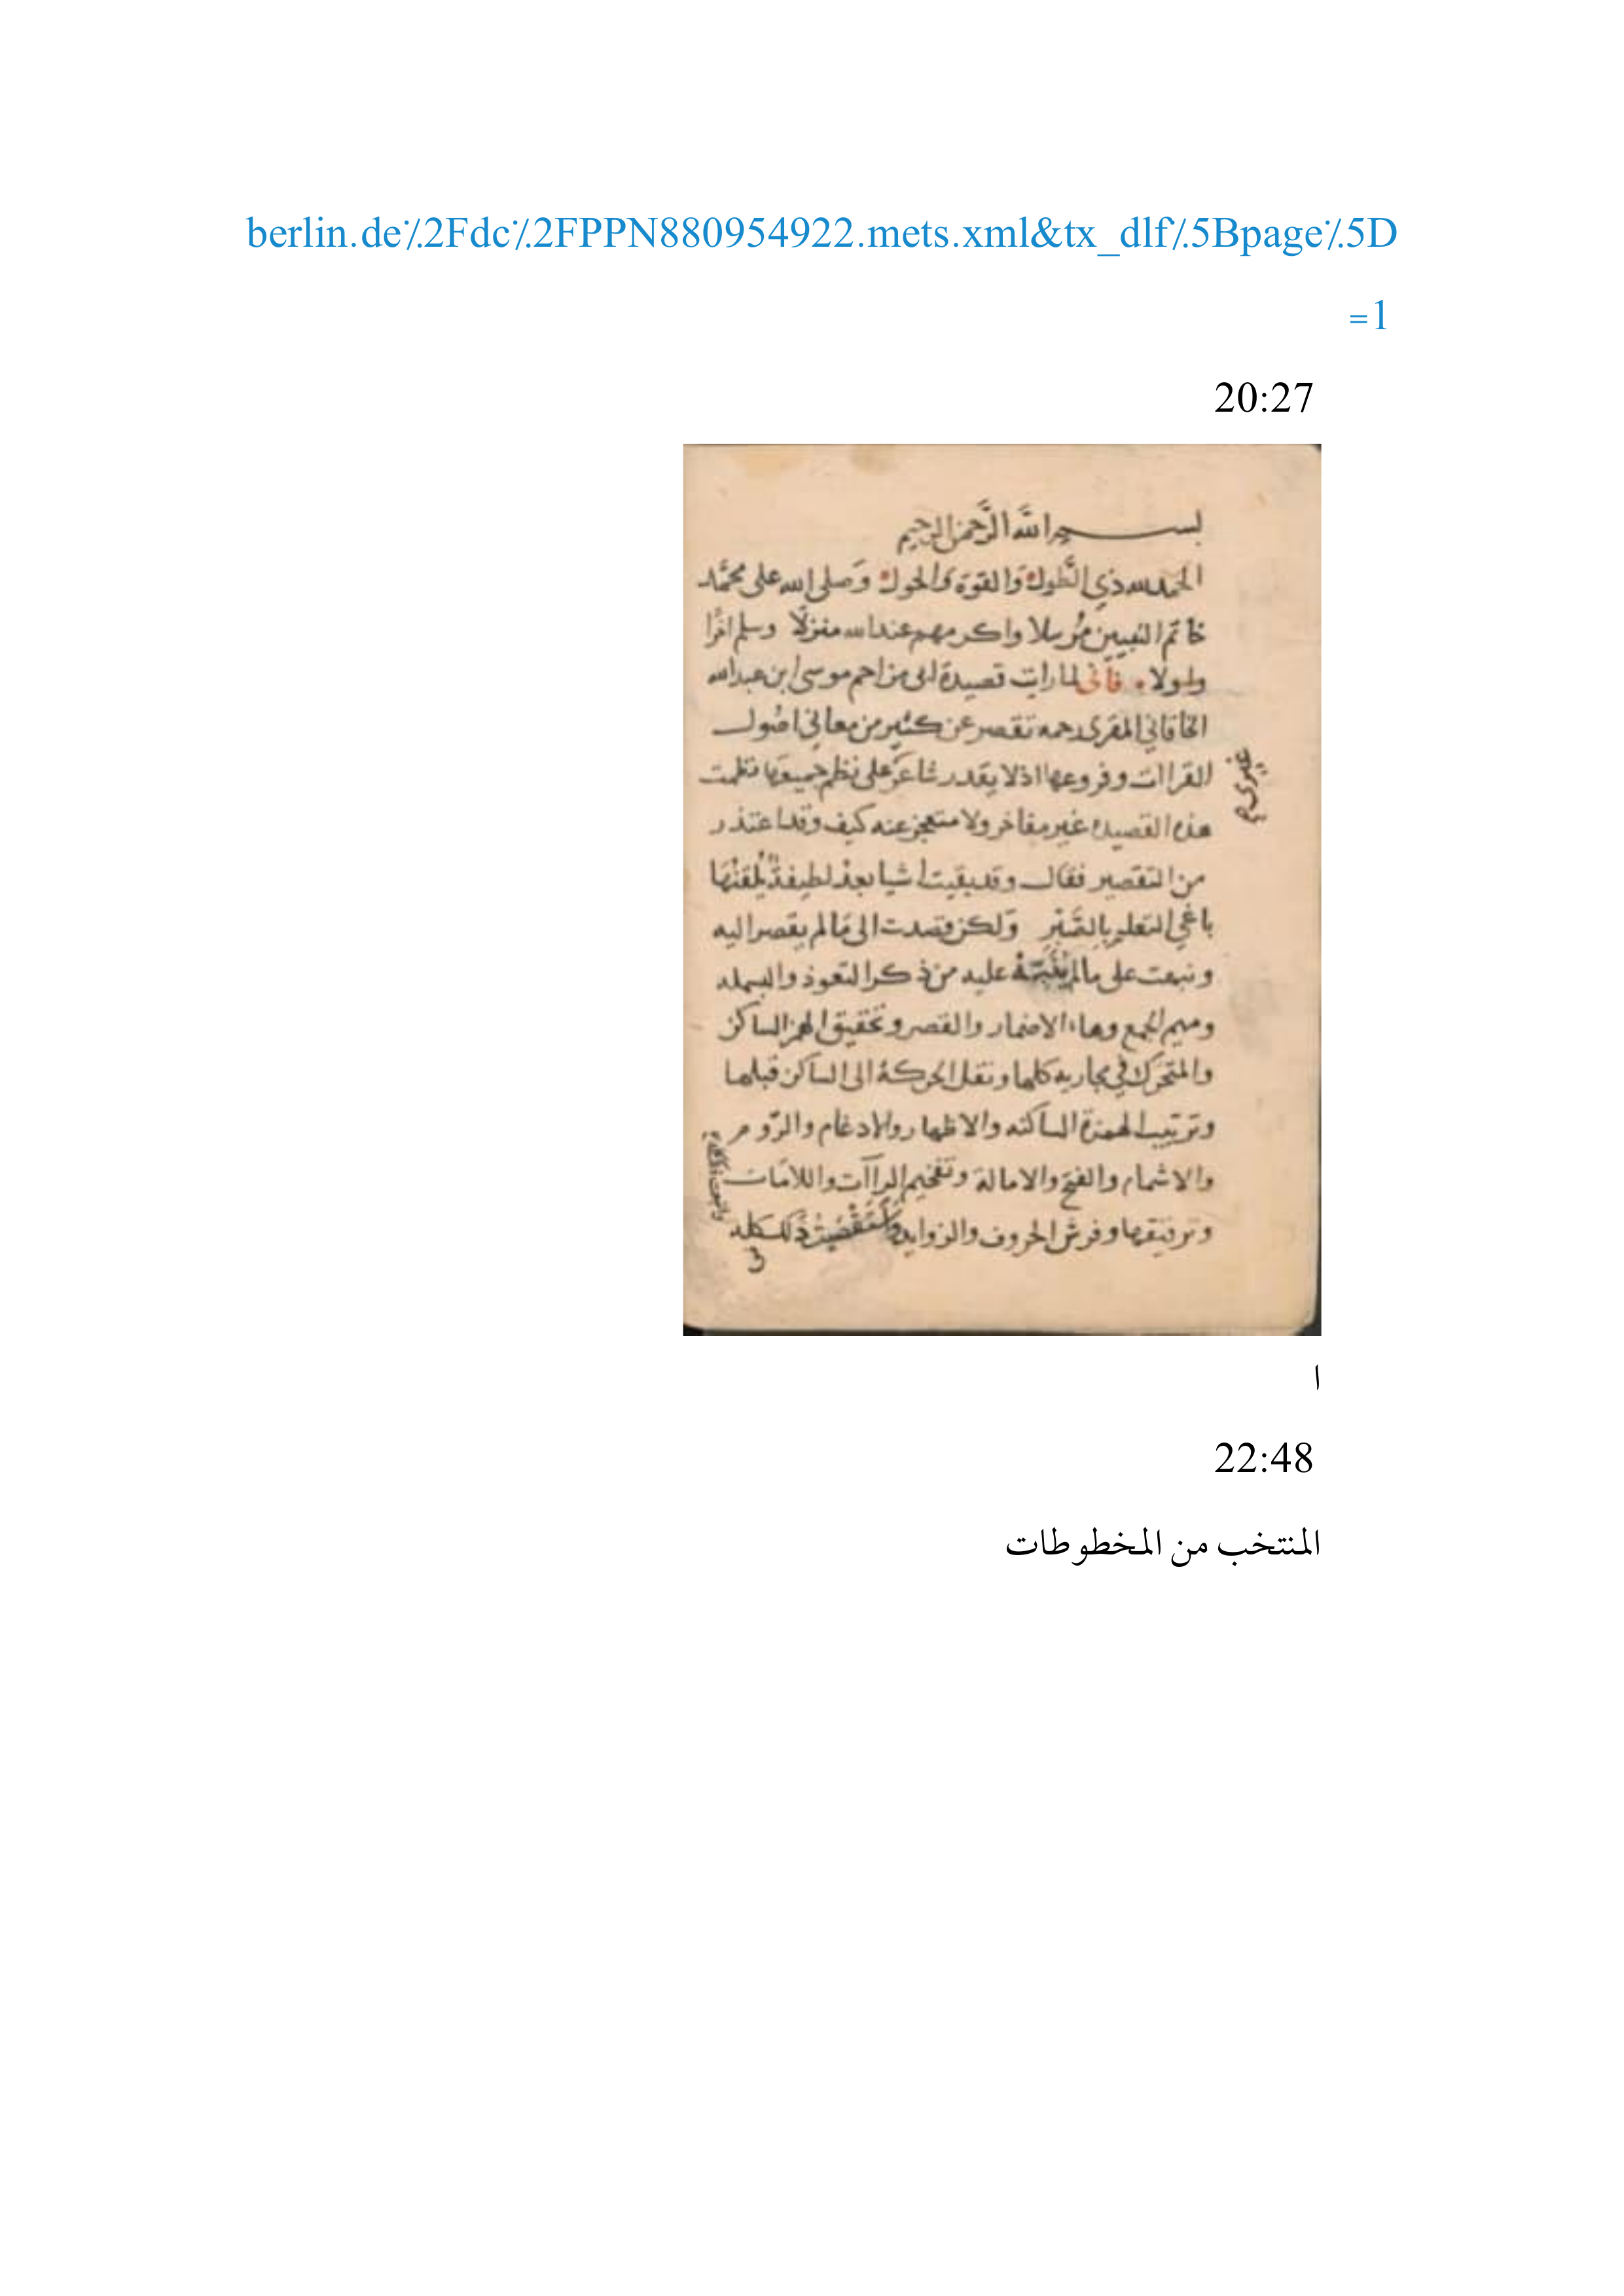 berlin.de%2Fdc%2FPPN880954922.mets.xml&tx_dlf%5Bpage%5D
=1
20:27
بسم الله الرَّحمن الرحيم
الحمد لله ذي الطَّول وَالقوة وَالحول وَصلى الله على محمَّد
خاتم النبيين مُرسلا واكرمهم عند الله منزلًا وسلم اخرًا
واولا فاني لما رايت قصيدة ابي مزاحم موسى ابن عبد الله
الخاقاني المقرى رحمه تقصر عن كثير من معاني اصُول
القراات وفروعها اذ لا يقدر شاعر على نظم جميعها نظمت
هذه القصيده غير مفاخر ولا متعجز عنه كيف وقد اعتذر
من التقصير فقال وقد بقيت اشيا بعدُ لطيفةٌ يُلقنُها
باغي التعلم بالصَّبْرِ وَلكن قصدت الى مَا لم يقصر اليه
ونبهت على ما لم عليه من ذكر التعوذ والبسمله
وميم الجمع وهاء الاضمار والقصر وتحقيق الهمز الساكن
والمتحرك في مجاريه كلها ونقل الحركة الى الساكن قبلها
وترتيب الهمزة الساكنه والاظهار والادغام والرّوم
والاشمام والفتح والامالة وتفخيم الراآت واللامَات
وترقيقها وفرش الحروف والزوايد ذلك كله
في
غيرى
ا
22:48
المنتخب من المخطوطات